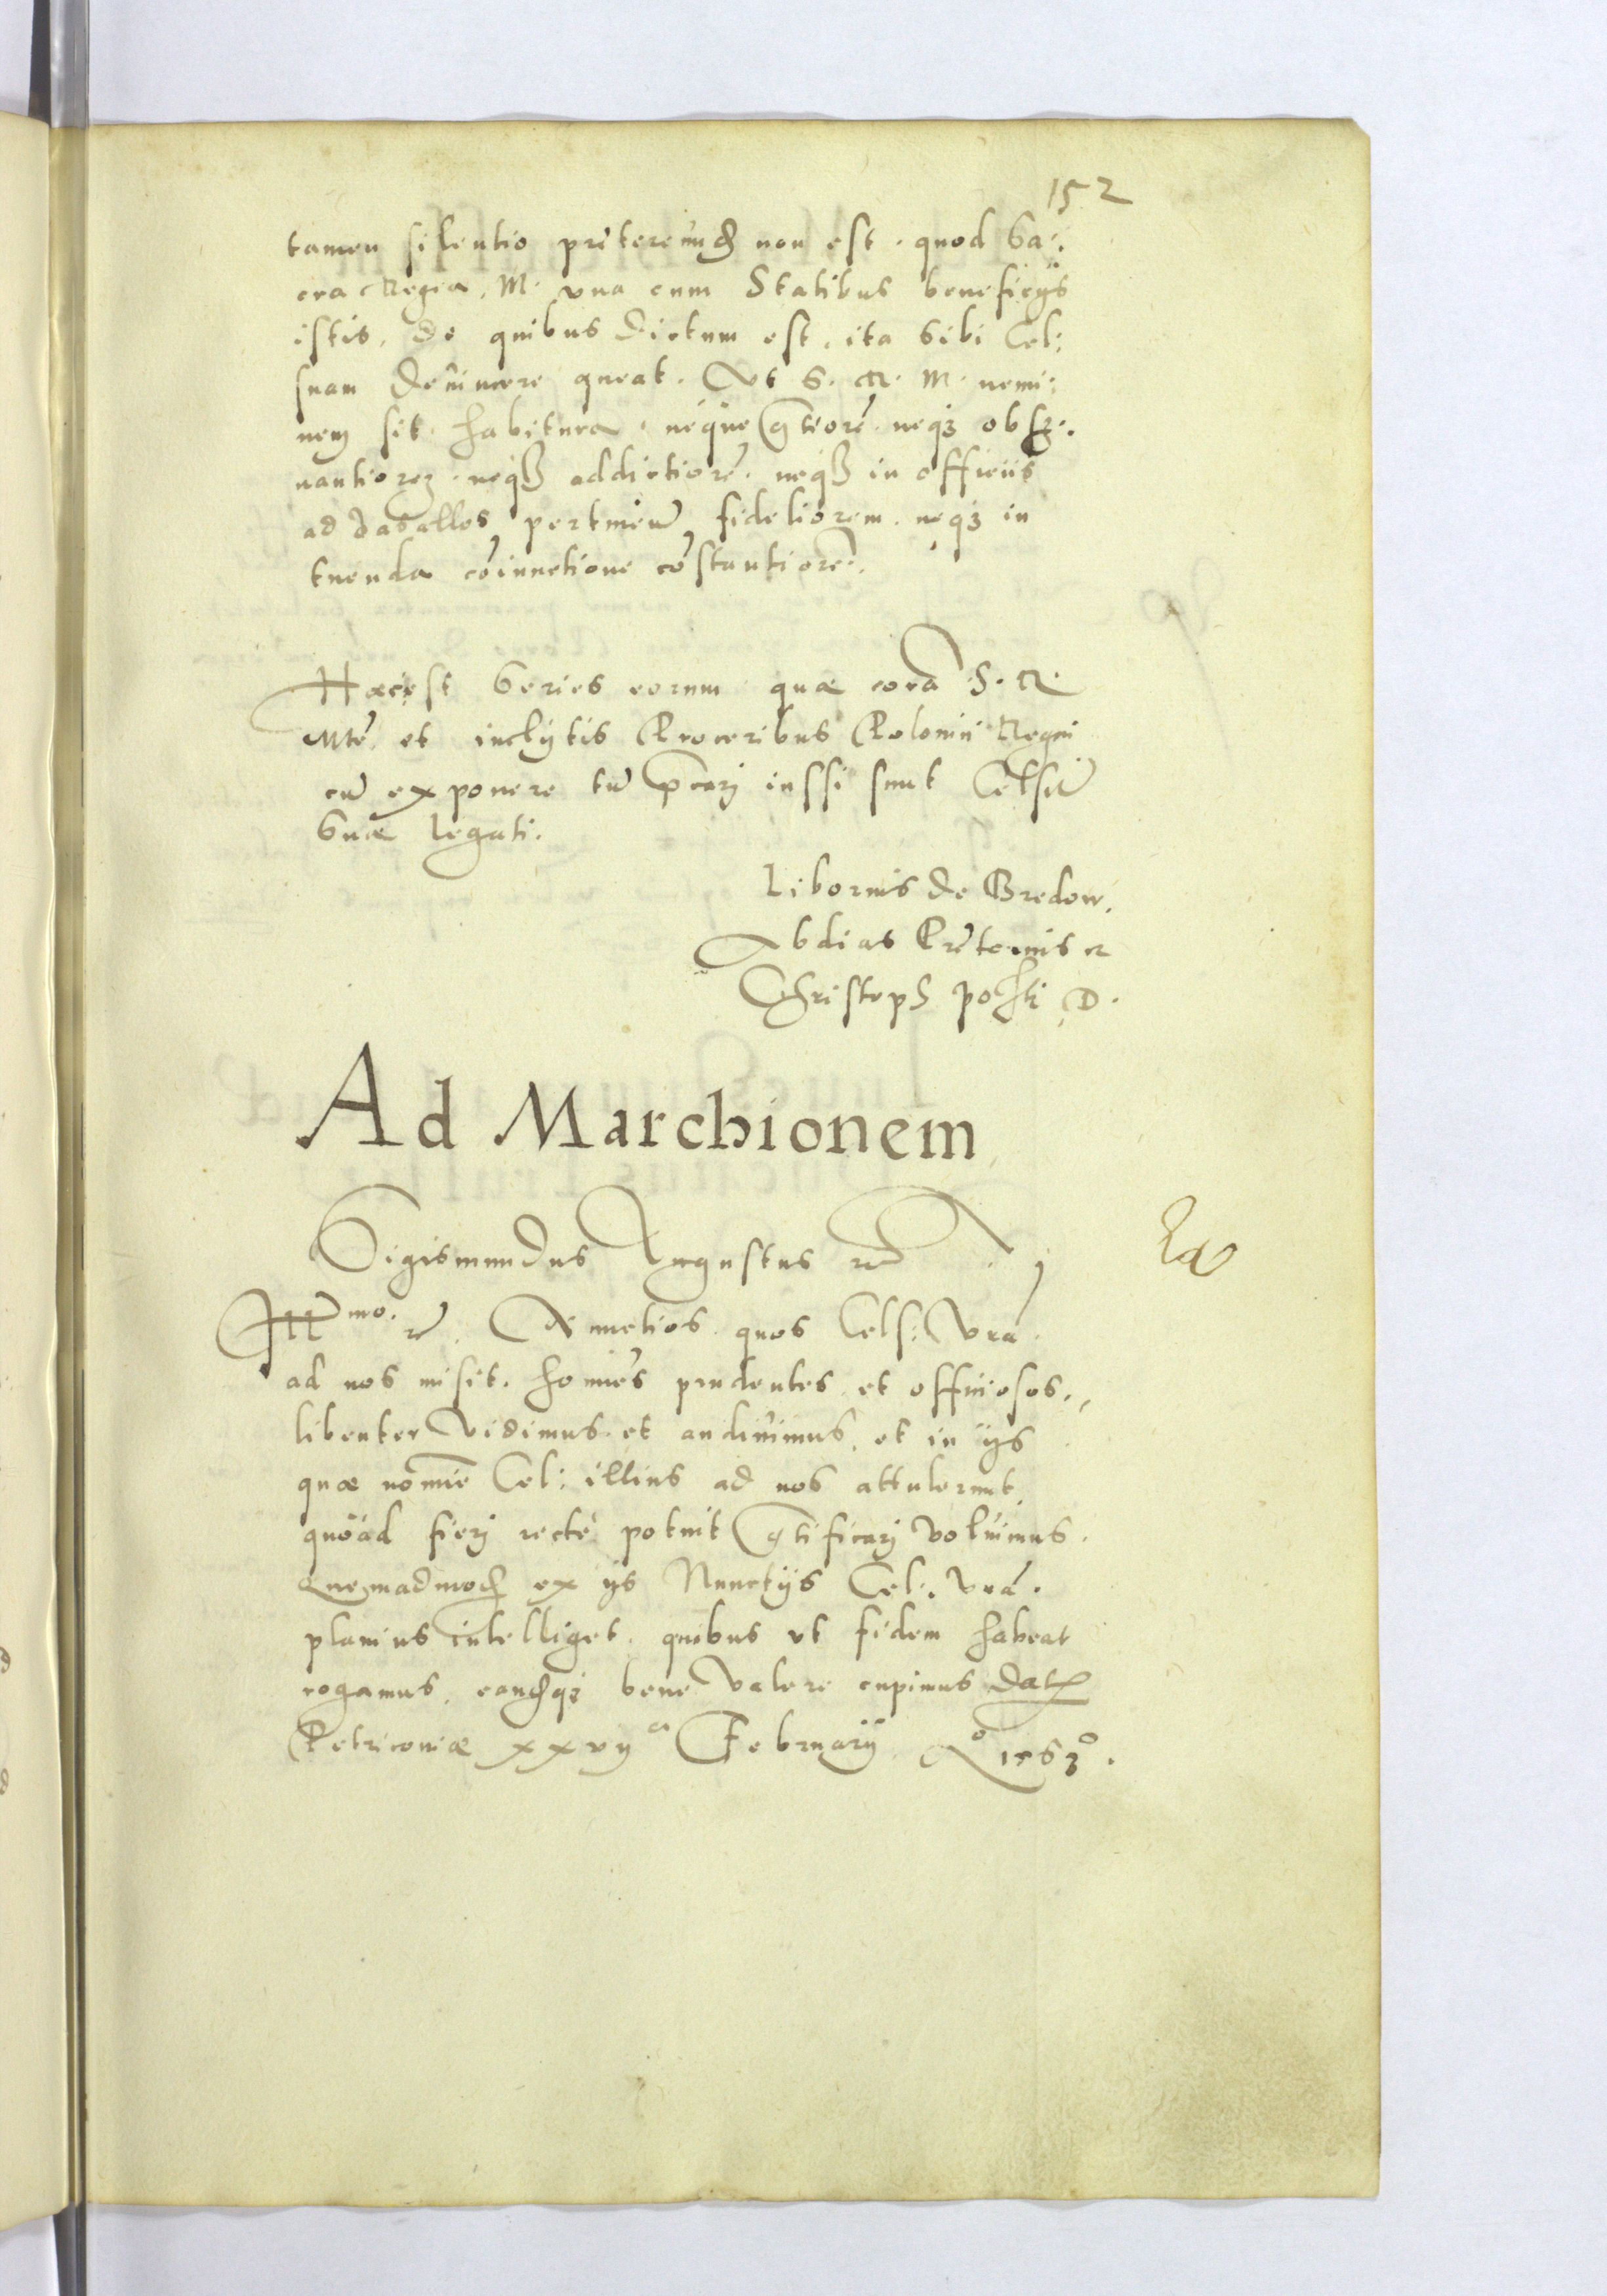 152
tamen silentio prætereund non est. quod Sa:
cra Regia. M. vna cum Statibus beneficijs
istis, de quibus dictum est, ita sibi Cel:
suam deuincere queat. Vt S. R. M. nemi:
nem sit habitura. neque gtiorē. neqȝ obser:
uantiorem. neqȝ addictiorē. neqȝ in officiis
ad Vasallos pertinen fideliorem. neqȝ in
tuenda cōiunctione cōstantiorē.
Hæc est Series eorum quæ corā S. R.
Mte. et inclytis Proceribus Polonii Regni
cū exponere tū pcarj iussi sunt Celsit
Suæ legati.
Liborius de Bredow.
Abdias Prætorius et
Christoph D.
Ad Marchionem
Sigismundus Augustus etc
Illmo. etc. Nunctios quos Cels: Vrā.
ad nos misit. homines prudentes et officiosos.
libenter Vidimus et audiuimus, et in ijs
quæ nomīe Cel: illius ad nos attulerunt,
quoad fierj recte potuit gtificarj voluimus.
Quemadmod ex ijs Nunctijs Cel: Vrā.
planius intelliget. quibus vt fidem habeat
rogamus, eandqȝ bene Valere cupimus Dat
Petricouiæ xxvij a February. Ao 1563o.